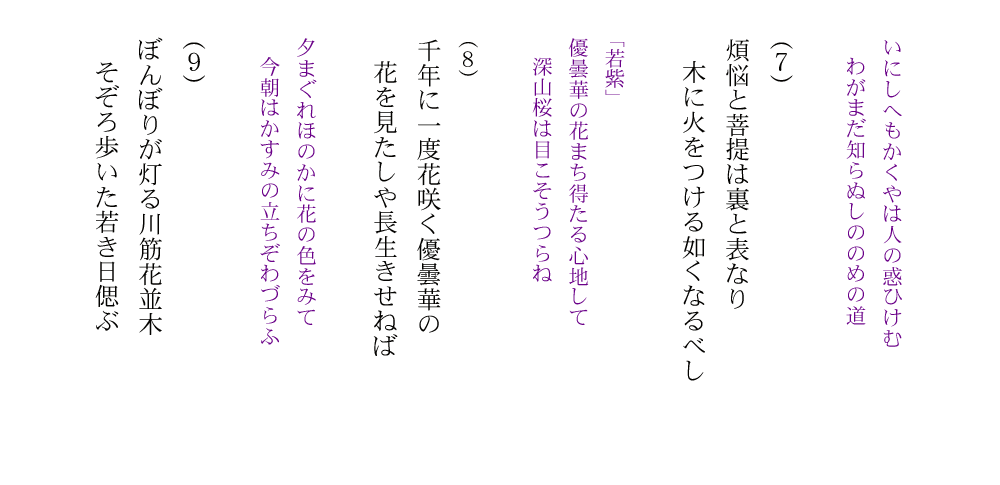 いにしへもかくやは人の惑ひけむ
わがまだ知らぬしののめの道
(7)
煩悩と菩提は裏と表なり
木に火をつける如くなるべし
「若紫」
優曇華の花まち得たる心地して
深山桜は目こそうつらね
(8)
千年に一度花咲く優曇華の
花を見たしや長生きせねば
夕まぐれほのかに花の色をみて
今朝はかすみの立ちぞわづらふ
(9)
ぼんぼりが灯る川筋花並木
そぞろ歩いた若き日偲ぶ